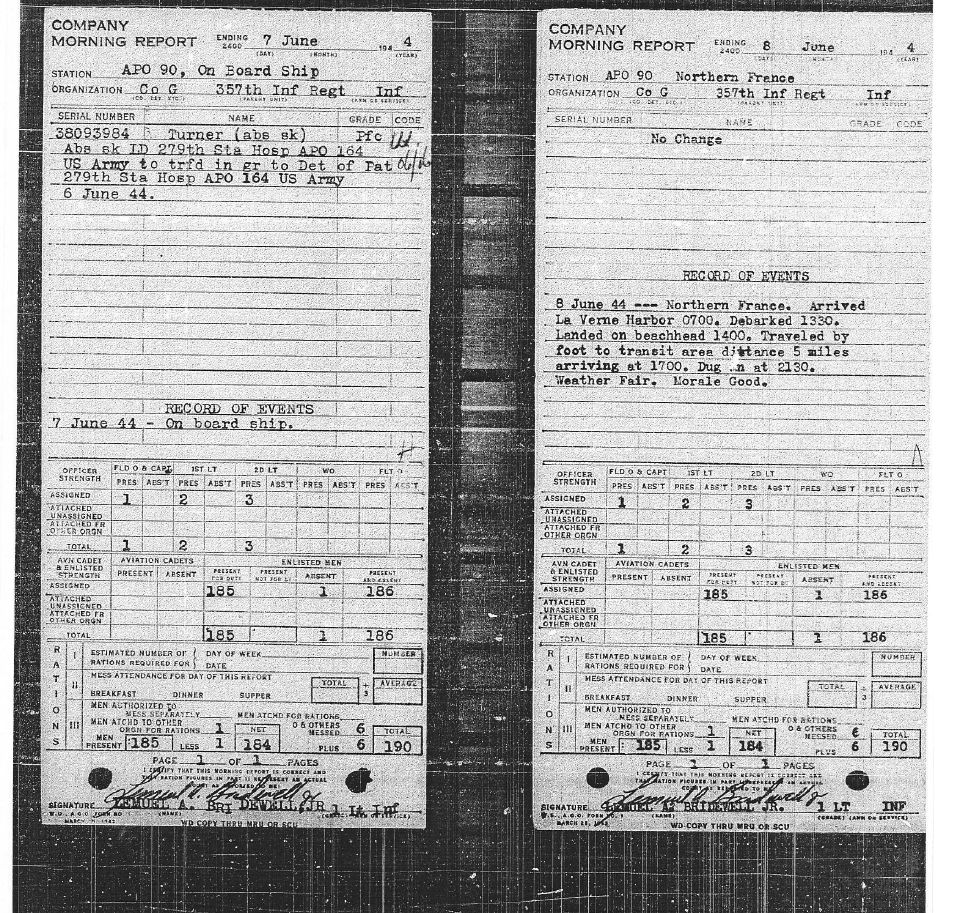 COMPANY
MORNING REPORT ENDING 2400 7 June 194 4
(DAY) (MONTH) (YEAR)
STATION APO 90, On Board Ship
ORGANIZATION Co G 357th Inf Regt Inf
(CO. DET. ETC.) (PARENT UNIT) (ARM OR SERVICE)
SERIAL NUMBER NAME GRADE CODE
38093984 Turner (abs sk) Pfc
Abs sk LD 279th Sta Hosp APO 164
US Army to trfd in gr to Det of Pat
279th Sta Hosp APO 164 US Army
6 June 44.
RECORD OF EVENTS
7 June 44 - On board ship.
OFFICER STRENGTH FLD O & CAPT 1ST LT 2D LT WO FLT O
PRES ABS'T PRES ABS'T PRES ABS'T PRES ABS'T PRES ABS'T
ASSIGNED 1 2 3
ATTACHED UNASSIGNED
ATTACHED FR OTHER ORGN
TOTAL 1 2 3
AVN CADET & ENLISTED STRENGTH AVIATION CADETS ENLISTED MEN
PRESENT ABSENT PRESENT FOR DUTY PRESENT NOT FOR DY ABSENT PRESENT AND ABSENT
ASSIGNED 185 1 186
ATTACHED UNASSIGNED
ATTACHED FR OTHER ORGN
TOTAL 185 1 186
RATIONS
I ESTIMATED NUMBER OF RATIONS REQUIRED FOR DAY OF WEEK DATE NUMBER
II MESS ATTENDANCE FOR DAY OF THIS REPORT
BREAKFAST DINNER SUPPER TOTAL ÷ 3 AVERAGE
III MEN AUTHORIZED TO MESS SEPARATELY MEN ATCHD FOR RATIONS
MEN ATCHD TO OTHER ORGN FOR RATIONS 1 NET O & OTHERS MESSED 6 TOTAL
MEN PRESENT 185 LESS 1 184 PLUS 6 190
PAGE 1 OF 1 PAGES
I CERTIFY THAT THIS MORNING REPORT IS CORRECT AND
Lemuel A. Bridewell Jr
SIGNATURE LEMUEL A. BRIDEWELL JR 1 Lt Inf
W.D., A.G.O. FORM NO. 1 (NAME) (GRADE) (ARM OR SERVICE)
WD COPY THRU MRU OR SCU
COMPANY
MORNING REPORT ENDING 2400 8 June 194 4
(DAY) (MONTH) (YEAR)
STATION APO 90 Northern France
ORGANIZATION Co G 357th Inf Regt Inf
(CO. DET. ETC.) (PARENT UNIT) (ARM OR SERVICE)
SERIAL NUMBER NAME GRADE CODE
No Change
RECORD OF EVENTS
8 June 44 --- Northern France. Arrived
La Verne Harbor 0700. Debarked 1330.
Landed on beachhead 1400. Traveled by
foot to transit area distance 5 miles
arriving at 1700. Dug in at 2130.
Weather Fair. Morale Good.
OFFICER STRENGTH FLD O & CAPT 1ST LT 2D LT WO FLT O
PRES ABS'T PRES ABS'T PRES ABS'T PRES ABS'T PRES ABS'T
ASSIGNED 1 2 3
ATTACHED UNASSIGNED
ATTACHED FR OTHER ORGN
TOTAL 1 2 3
AVN CADET & ENLISTED STRENGTH AVIATION CADETS ENLISTED MEN
PRESENT ABSENT PRESENT FOR DUTY PRESENT NOT FOR DY ABSENT PRESENT AND ABSENT
ASSIGNED 185 1 186
ATTACHED UNASSIGNED
ATTACHED FR OTHER ORGN
TOTAL 185 1 186
RATIONS
I ESTIMATED NUMBER OF RATIONS REQUIRED FOR DAY OF WEEK DATE NUMBER
II MESS ATTENDANCE FOR DAY OF THIS REPORT
BREAKFAST DINNER SUPPER TOTAL ÷ 3 AVERAGE
III MEN AUTHORIZED TO MESS SEPARATELY MEN ATCHD FOR RATIONS
MEN ATCHD TO OTHER ORGN FOR RATIONS 1 NET O & OTHERS MESSED 6 TOTAL
MEN PRESENT 185 LESS 1 184 PLUS 6 190
PAGE 1 OF 1 PAGES
I CERTIFY THAT THIS MORNING REPORT IS CORRECT AND
Lemuel A. Bridewell Jr
SIGNATURE LEMUEL A. BRIDEWELL JR. 1 LT INF
W.D., A.G.O. FORM NO. 1 (NAME) (GRADE) (ARM OR SERVICE)
WD COPY THRU MRU OR SCU